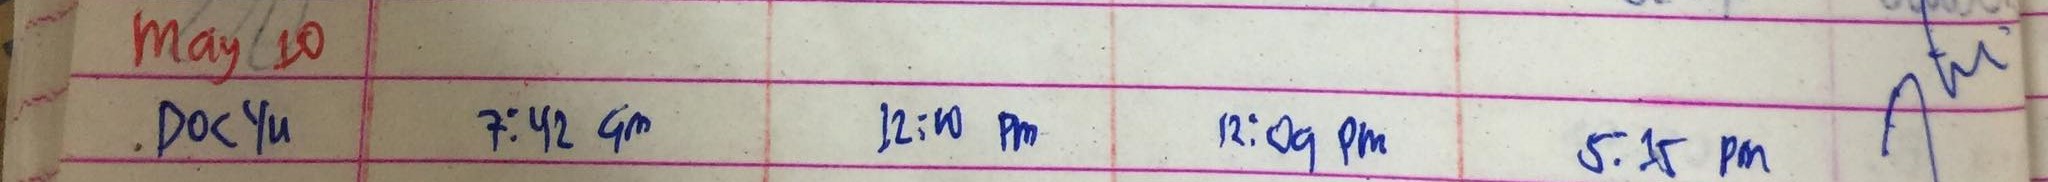 May 10
Doc Yu 7:42 am 12:10 pm 12:09 pm 5:15 pm